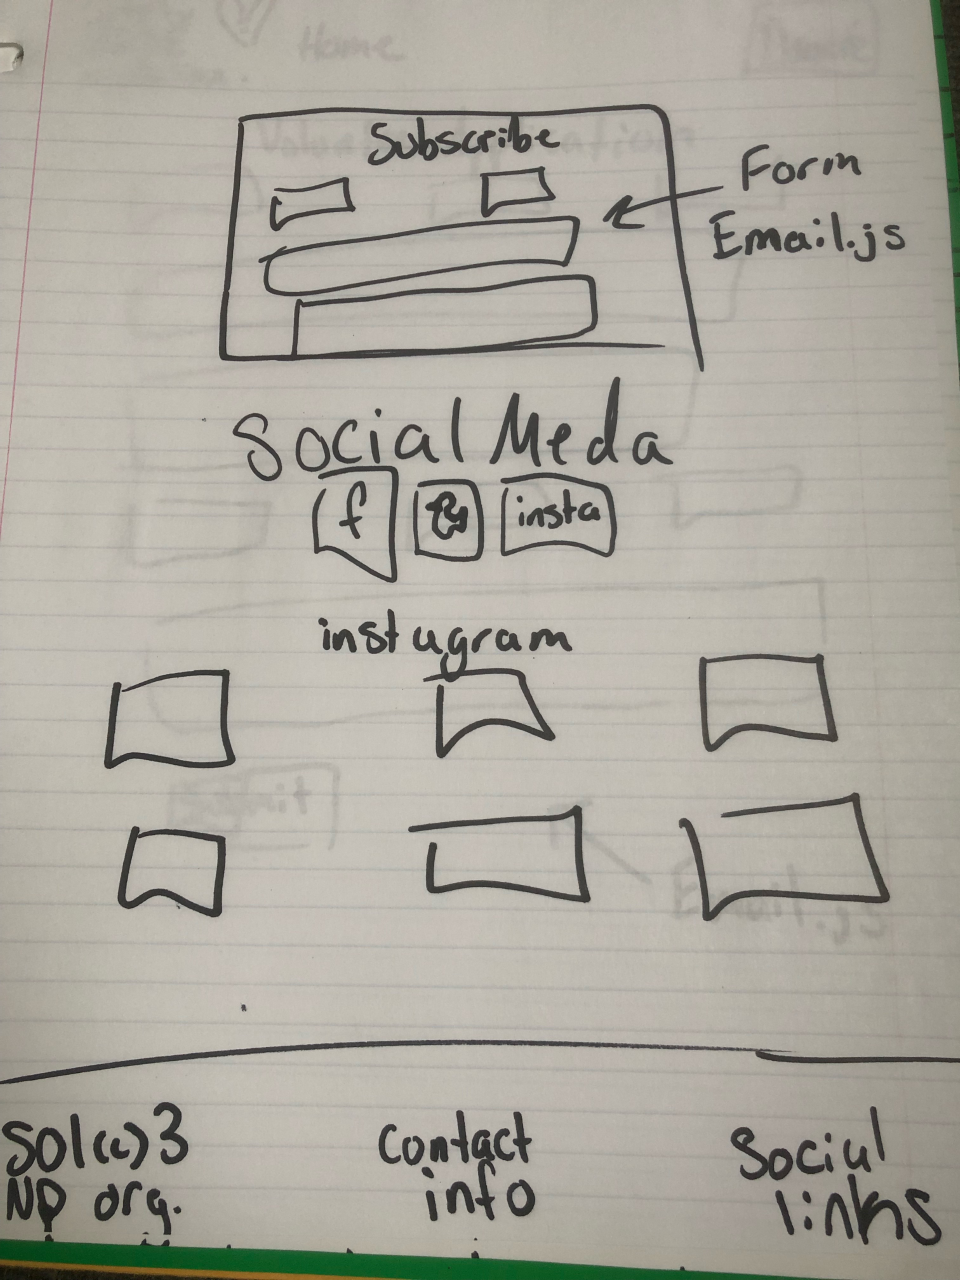 Subscribe
Form
Email.js
Social Meda
f
insta
instagram
501(c)3
NP org.
Contact
info
Social
links